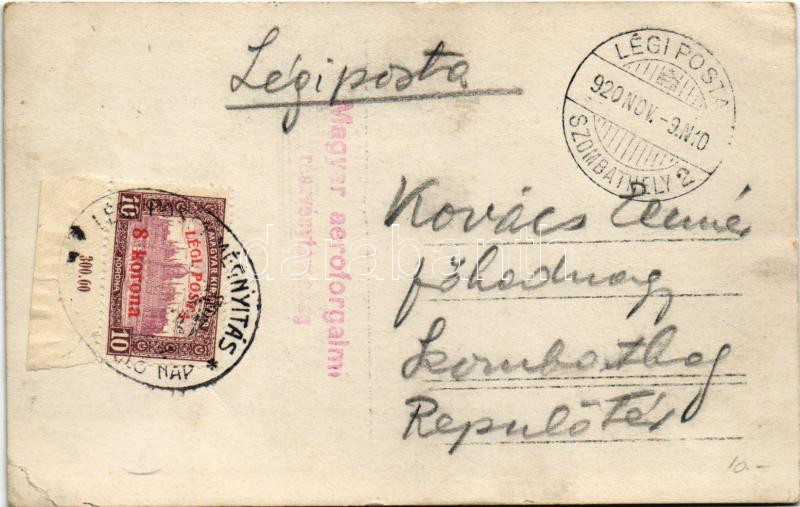 Légiposta
LÉGI POSTA
920 NOV. -9.N10
SZOMBATHELY 2
Magyar aeroforgalmi
Kovács Elemér
főhadnagy
Szombathely
Repülőtér
MAGYAR KIR. POSTA
LÉGI POSTA
8 korona
10
KORONA
10
300.60
MEGNYITÁS
NAP
darabanth
10.-